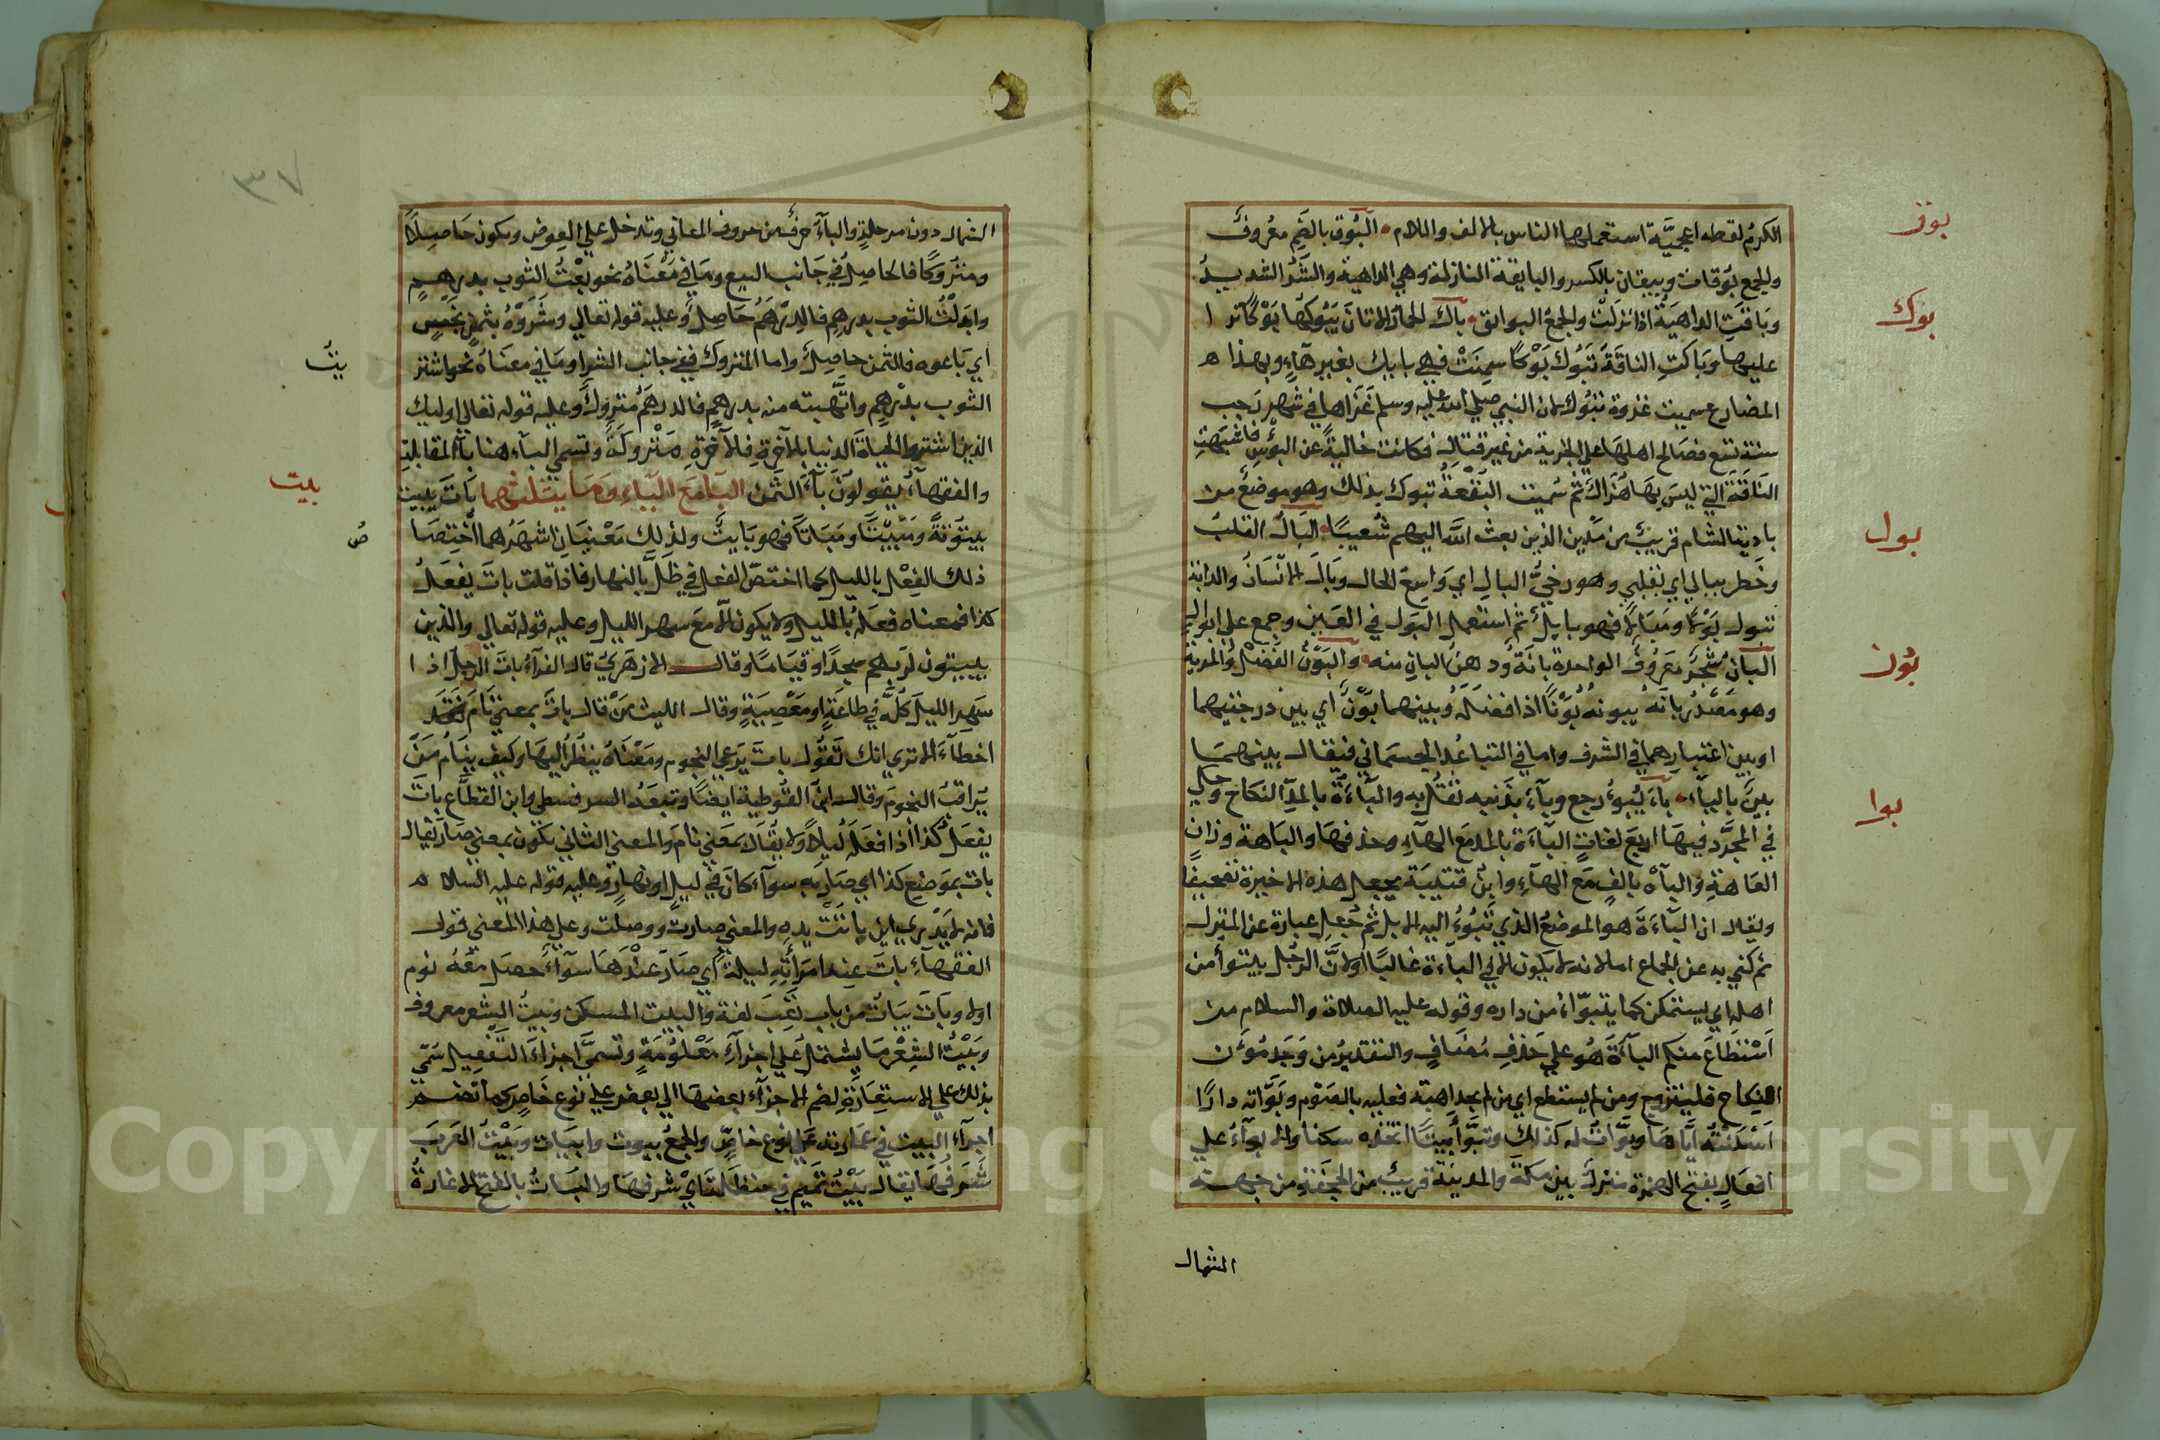 بوق
بوك
بول
بون
بوا
الكرم لفظه اعجمية استعملها الناس بالالف واللام البُوق بالضم معروف
والجمع بوقات وبيقان بالكسر والبايقة النازلة وهي الداهية والشر الشديد
وباقت الداهية اذا نزلت والجمع البوائق باك الحمار الاتان يبوكها بوكا نزا
عليها وباكت الناقة تبوك بوكا سمنت فهي بايك بغير هاء وبهذا
المضارع سميت غزوة تبوك لان النبي صلي الله عليه وسلم غزاها في شهر رجب
سنة تسع فصالح اهلها علي الجزية من غير قتال فكانت خالية عن البؤس فاشبهت
الناقة التي ليس بها هزال ثم سميت البقعة تبوك بذلك وهو موضع من
بادية الشام قريب من مدين الذين بعث الله اليهم شعيبا البال القلب
وخطر ببالي اي بقلبي وهو رخي البال اي واسع الحال وبال الانسان والدابة
تبول بولا ومبالا فهو بايل ثم استعمل البول في العين وجمع علي ابوال
البان شجر معروف الواحدة بانة ودهن البان منه والبون الفضل والمزية
وهو مصدر بانه يبونه بونا اذا فضله وبينهما بون اي بين درجتيهما
او بين اعتبارهما في الشرف واما في التباعد الجسماني فيقال بينهما
بين بالياء باء يبوء رجع وباء بذنبه ثقل به والباءة بالمد النكاح وحكي
في المجرد فيها اربع لغات الباءة بالمد مع الهاء وحذفها والباهة وزان
العاهة والباه بالف مع الهاء وابن قتيبة يجعل هذه الاخيرة تصحيفا
ويقال ان الباءة هو الموضع الذي تبوء اليه الابل ثم جعل عبارة عن المنزل
ثم كني به عن الجماع اما لانه لا يكون الا في الباءة غالبا او لان الرجل يتبوأ من
اهله اي يستمكن كما يتبوأ من داره وقوله عليه الصلاة والسلام من
استطاع منكم الباءة هو علي حذف مضاف والتقدير من وجد مؤن
النكاح فليتزوج ومن لم يستطع اي من لم يجد اهبته فعليه بالصوم وبوأته دارا
اسكنته اياها وبوأت له كذلك وتبوأ بيتا اتخذه سكنا والابواء علي
افعال بفتح الهمزة منزل بين مكة والمدينة قريب من الجحفة من جهة
الشمال
٣٧
بيت
الشمال دون مرحلة والباء حرف من حروف المعاني وتدخل علي العوض ويكون حاصلا
ومتروكا فالحاصل في جانب البيع وما في معناه نحو بعت الثوب بدرهم
وابدلت الثوب بدرهم فالدرهم حاصل وعليه قوله تعالي وشروه بثمن بخس
اي باعوه فالثمن حاصل واما المتروك ففي جانب الشرا وما في معناه نحو اشتر
الثوب بدرهم واتهبته منه بدرهم فالدرهم متروك وعليه قوله تعالي اوليك
الذين اشتروا الحياة الدنيا بالاخرة فالاخرة متروكة وتسمي الباء هنا باء المقابلة
والفقهاء يقولون باء الثمن الباء مع الياء وما يثلثهما بات يبيت
بيتوتة ومبيتا ومباتا فهو بايت ولذلك معنيان اشهرهما اختصاص
ذلك الفعل بالليل كما اختص الفعل في ظل بالنهار فاذا قلت بات يفعل
كذا فمعناه فعله بالليل ولا يكون الا مع سهر الليل وعليه قوله تعالي والذين
يبيتون لربهم سجدا وقياما وقال الازهري قال الفراء بات الرجل اذا
سهر الليل كله في طاعة او معصية وقال الليث من قال بات بمعني نام فقد
اخطأ الا تري انك تقول بات يرعي النجوم ومعناه ينظر اليها وكيف ينام من
يراقب النجوم وقال ابن القوطية ايضا وتبعه السرقسطي وابن القطاع بات
يفعل كذا اذا فعله ليلا ولا يقال بمعني نام والمعني الثاني يكون بمعني صار يقال
بات بموضع كذا اي صار به سواء كان في ليل او نهار وعليه قوله عليه السلام
فانه لا يدري اين باتت يده والمعني صارت ووصلت وعلي هذا المعني قول
الفقهاء بات عند امرأته ليلة اي صار عندها سواء حصل معه نوم
اولا وبات يبات من باب تعب لغة والبيت المسكن وبيت الشعر معروف
وبيت الشعر ما يشتمل علي اجزاء معلومة وتسمي اجزاء التفعيل سمي
بذلك علي الاستعارة لضم الاجزاء بعضها الي بعض علي نوع خاص كما تضم
اجزاء البيت في عمارته علي نوع خاص والجمع بيوت وابيات وبيت العرب
شرفها يقال بيت تميم في حنظلة اي شرفها والبيات بالفتح الاغارة
Copyright © King Saud University